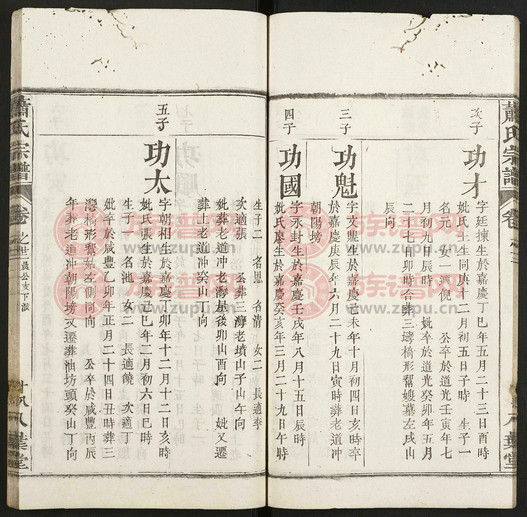 蕭氏宗譜
次子
功才
字廷揀生於嘉慶丁巳年五月二十三日酉時
妣氏 生同庚十二月初五日子時 生子一
名元 女一 適倪 公卒於道光壬寅年七
月初九日辰時 妣卒於道光癸卯年五月
二十七日卯時合葬三 橋形 墓左戌山
辰向
三子
功魁
字文 生於嘉慶己未年十月初四日亥時卒
於嘉慶庚辰年六月二十九日寅時葬老道冲
朝陽塝
四子
功國
字永封生於嘉慶壬戌年八月十五日辰時
妣氏 生於嘉慶癸亥年三月二十九日午時
生子二 名 名清 女二 長適李
次適張 公葬三灣老墳山子山午向
妣葬老道冲老灣 後卯山酉向 妣又遷
葬上老道冲癸山丁向
五子
功太
字朝相生於嘉慶乙丑年十二月十二日亥時
妣氏張生於嘉慶己巳年二月初六日巳時
生子一 名池 女二 長適饒 次適丁
妣卒於咸豐乙卯年正月二十四日丑時葬三
灣橋形 左側同向 公卒於咸豐丙辰
年葬老道冲朝陽塝又遷葬油坊頭癸山丁向
蕭氏宗譜
卷
八葉堂